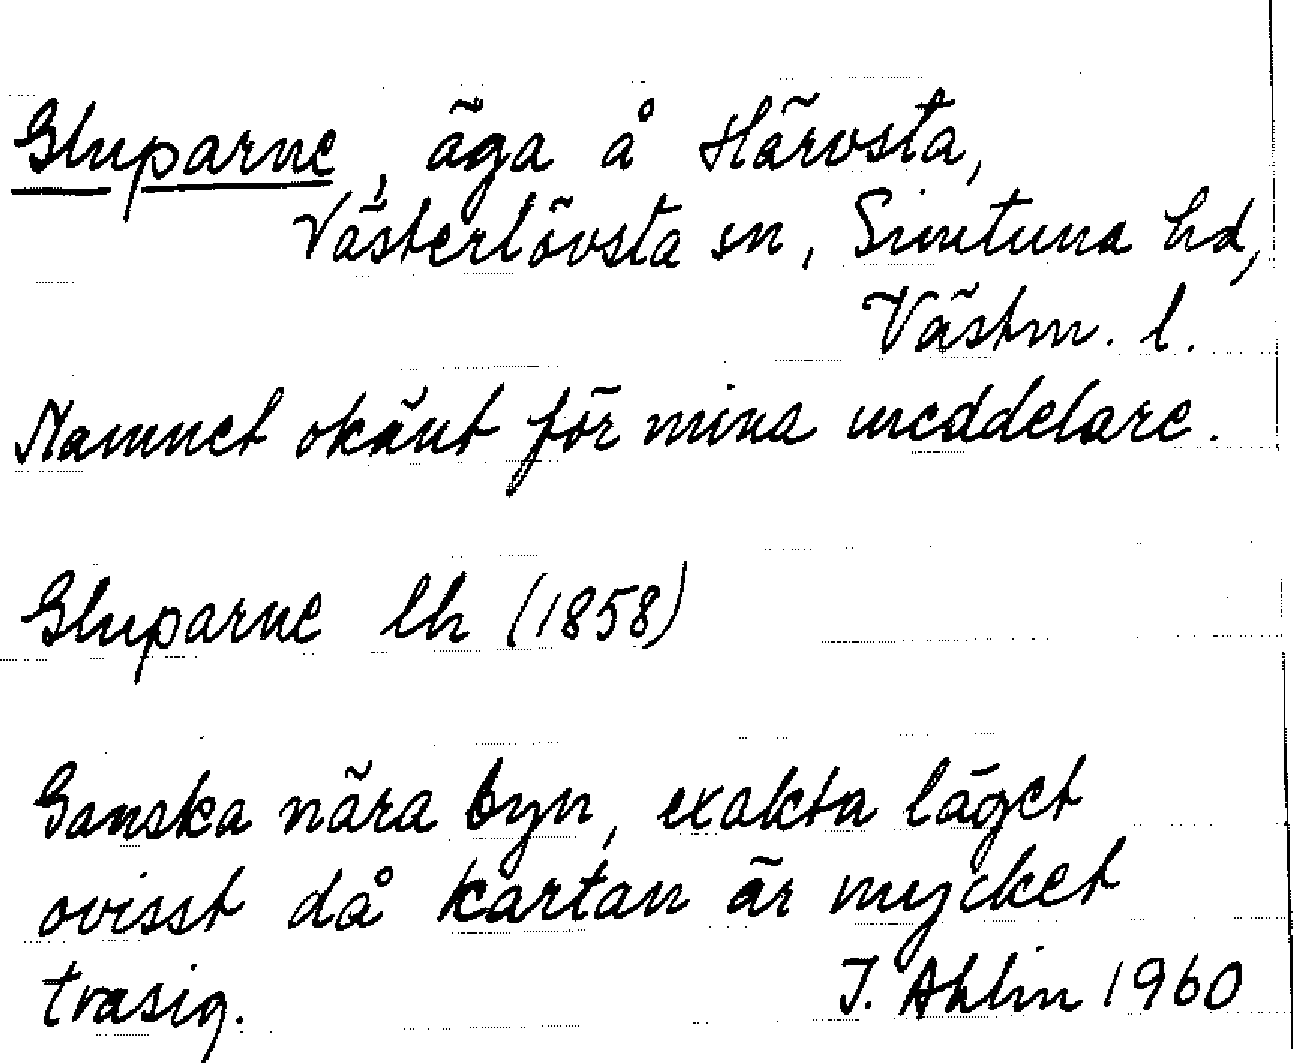 Gluparne, äga å Härvsta,
Västerlövsta sn, Simtuna hd,
Västm. l.
Namnet okänt för mina meddelare.
Gluparne lh (1858)
Ganska nära byn, exakta läget
ovisst då kartan är mycket
trasig. I. Ahlin 1960